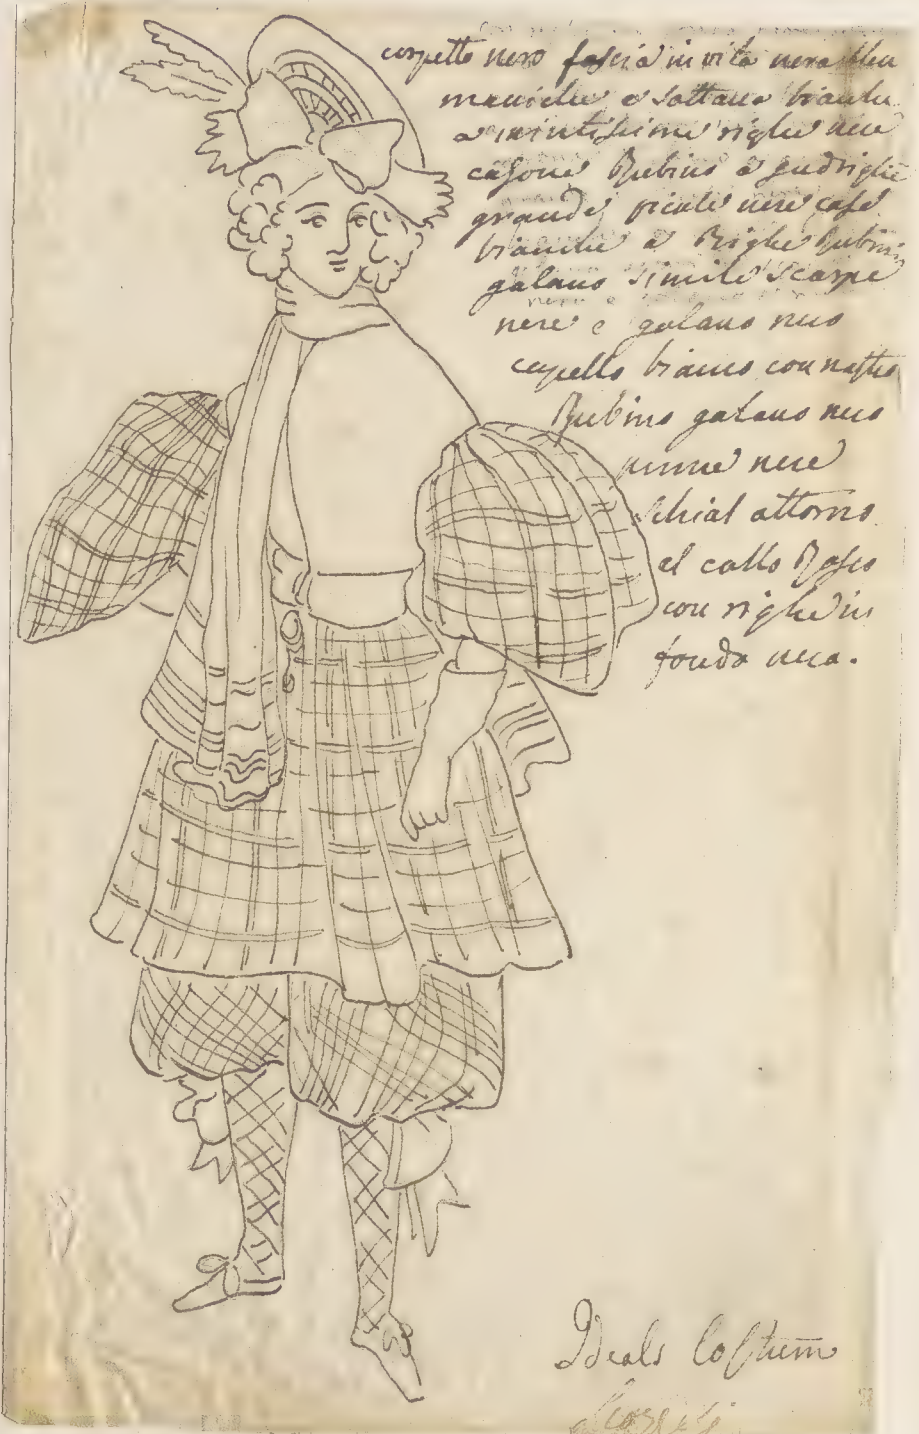 corpetto nero fascia in vita nera
maniche e sottana bianche
a minutissime righe nere
calsone Rubino a qudriglie
grande picole nere calse
bianche a Righe Rubino
galano simile scarpe
nere e galano nero
capello bianco con nastro
Rubino galano nero
piume nere
schial attorno
al collo Roseo
con righe in
fondo nera.
Ideals Costhem